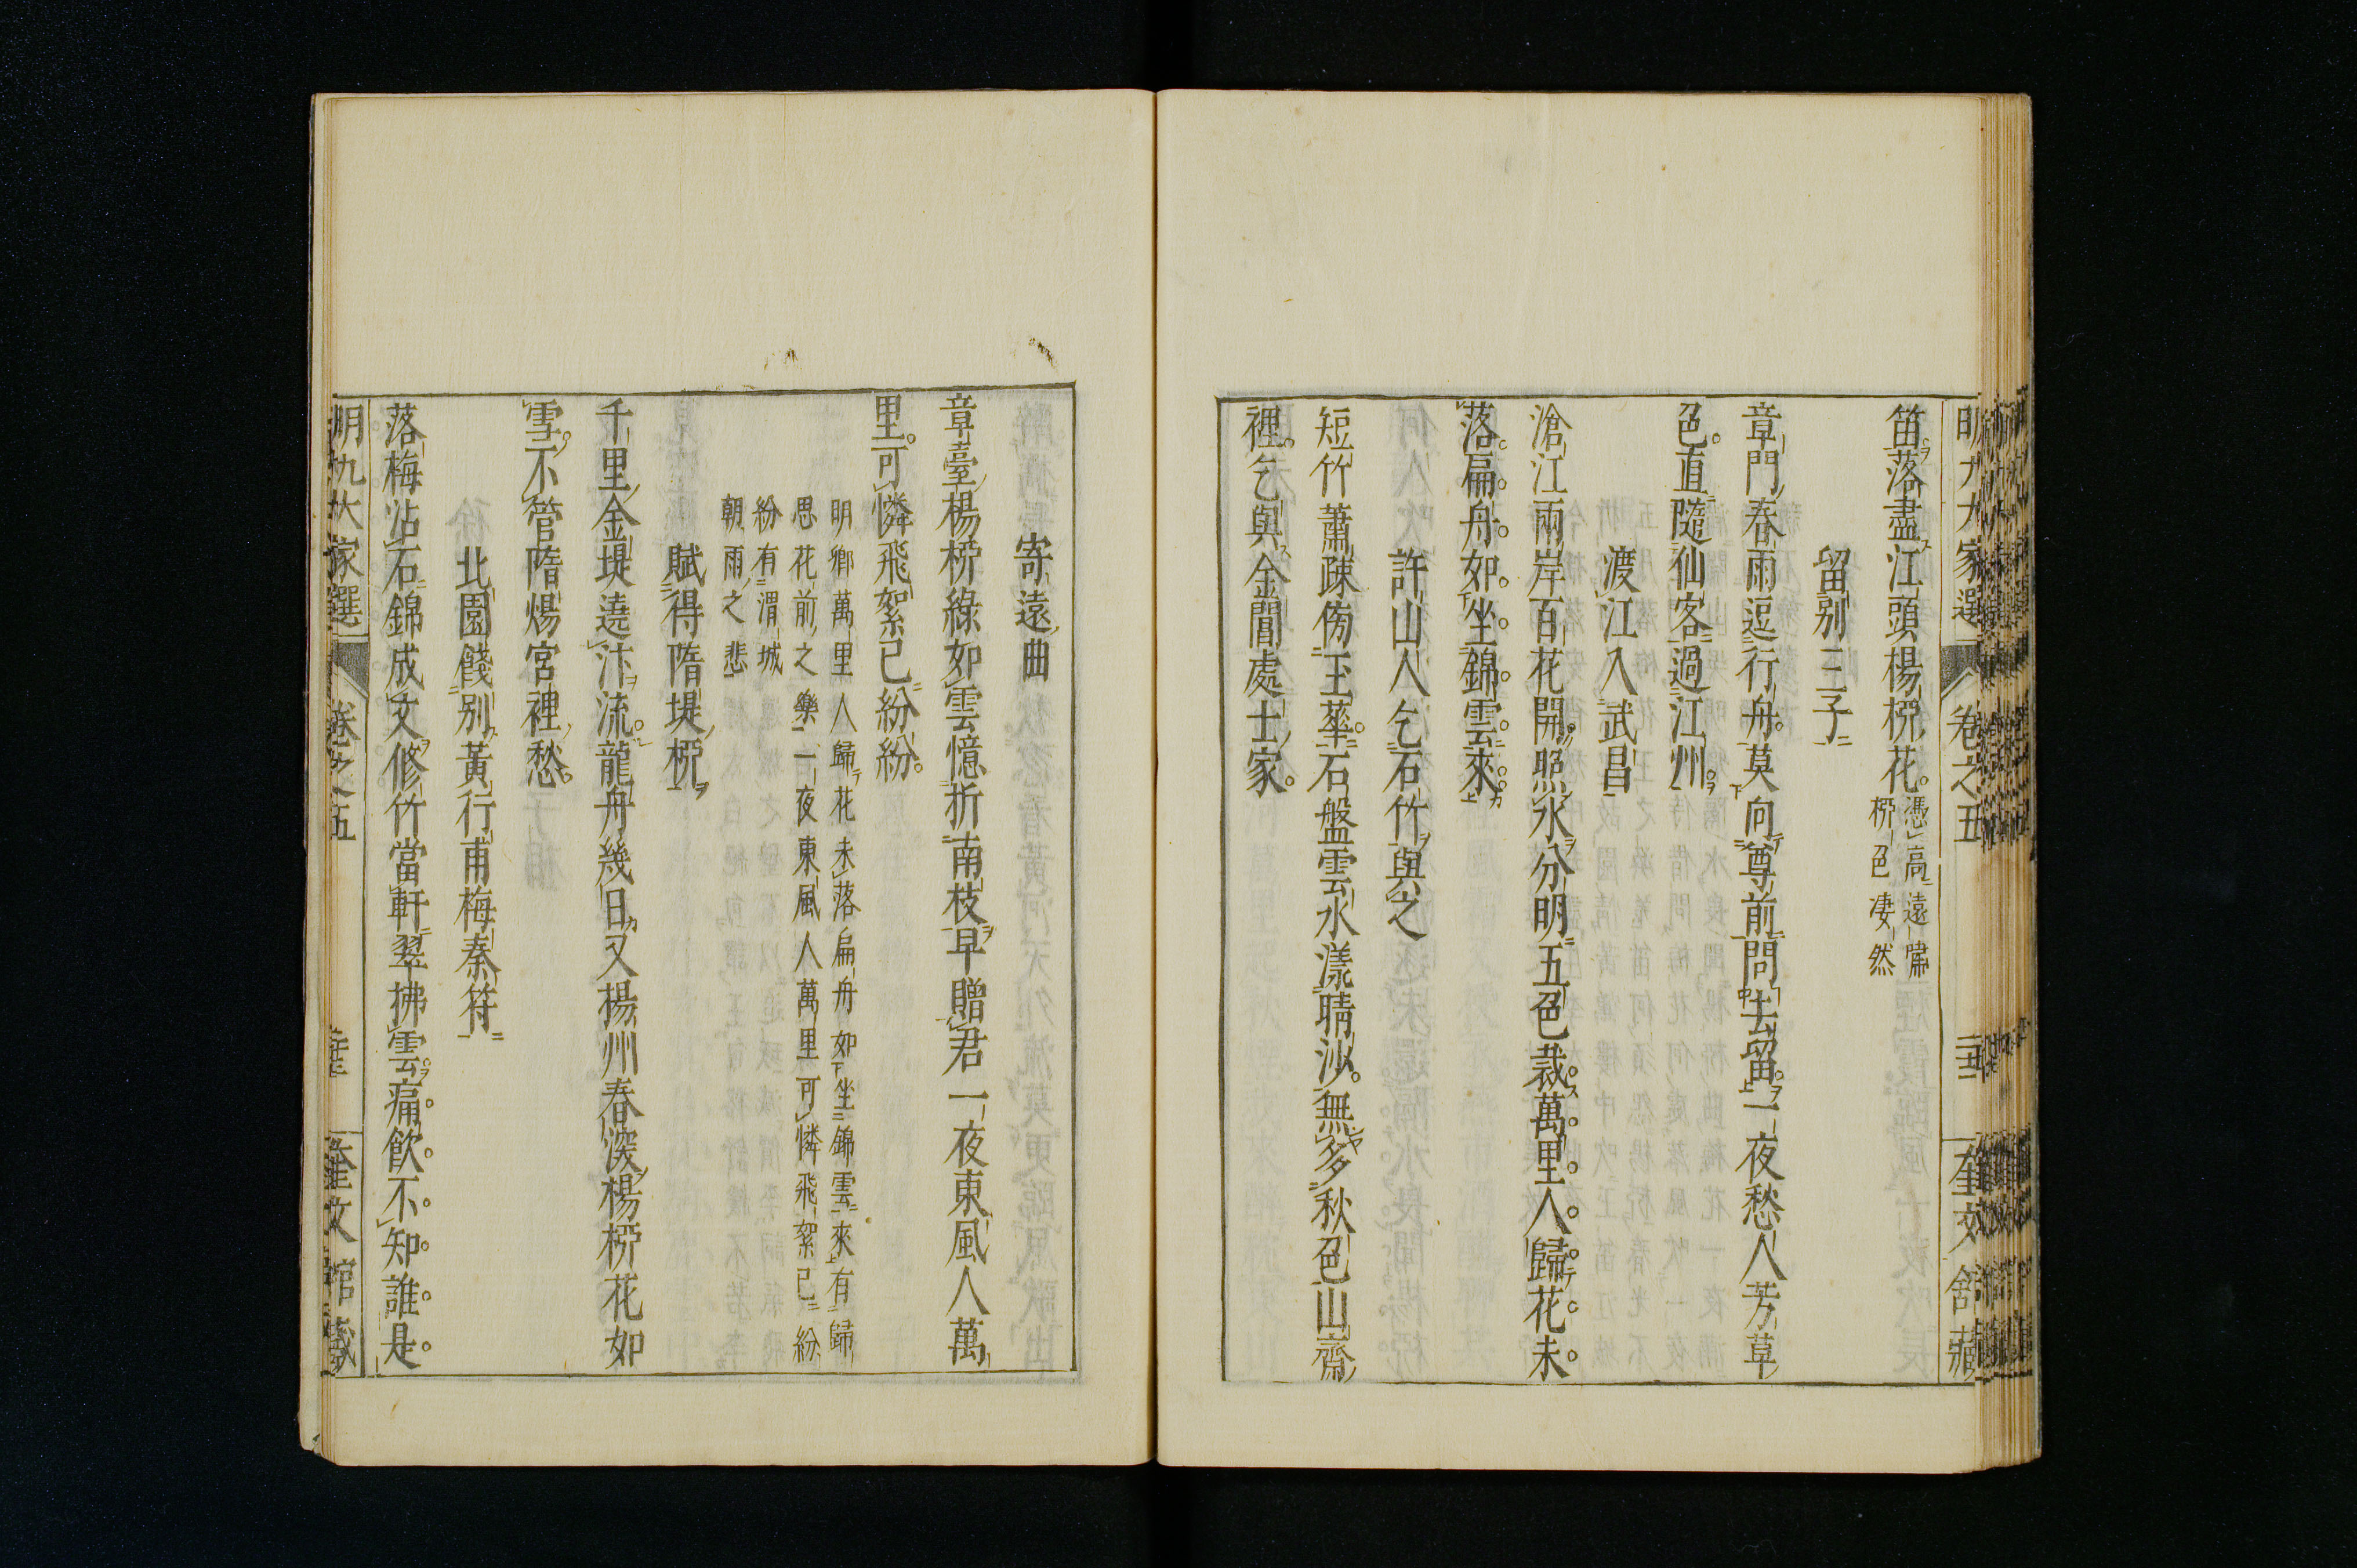 明九大家選 卷之五 奎文館藏
笛落盡江頭楊柳花憑高遠儒
柳色凄然
留别三子
章門春雨逗行舟莫向尊前問去留一夜愁人芳草
色直隨仙客過江州
渡江入武昌
滄江兩岸百花開照水分明五色裁萬里人歸花未
落扁舟如坐錦雲來
許山人乞石竹與之
短竹蕭疎傍玉華石盤雲水漾晴沙無多秋色山齋
裡乞與金閶處士家
寄遠曲
章臺楊柳綠如雲憶折南枝早贈君一夜東風人萬
里可憐飛絮已紛紛
明卿萬里人歸花未落扁舟如坐錦雲來有歸
思花前之樂一夜東風人萬里可憐飛絮已紛
紛有渭城
朝雨之悲
賦得隋堤柳
千里金堤遶汴流龍舟幾日又揚州春深楊柳花如
雪不管隋煬宮裡愁
北園餞别黃行甫梅秦符
落梅沾石錦成文修竹當軒翠拂雲痛飲不知誰是
明九大家選 卷之五 奎文館藏